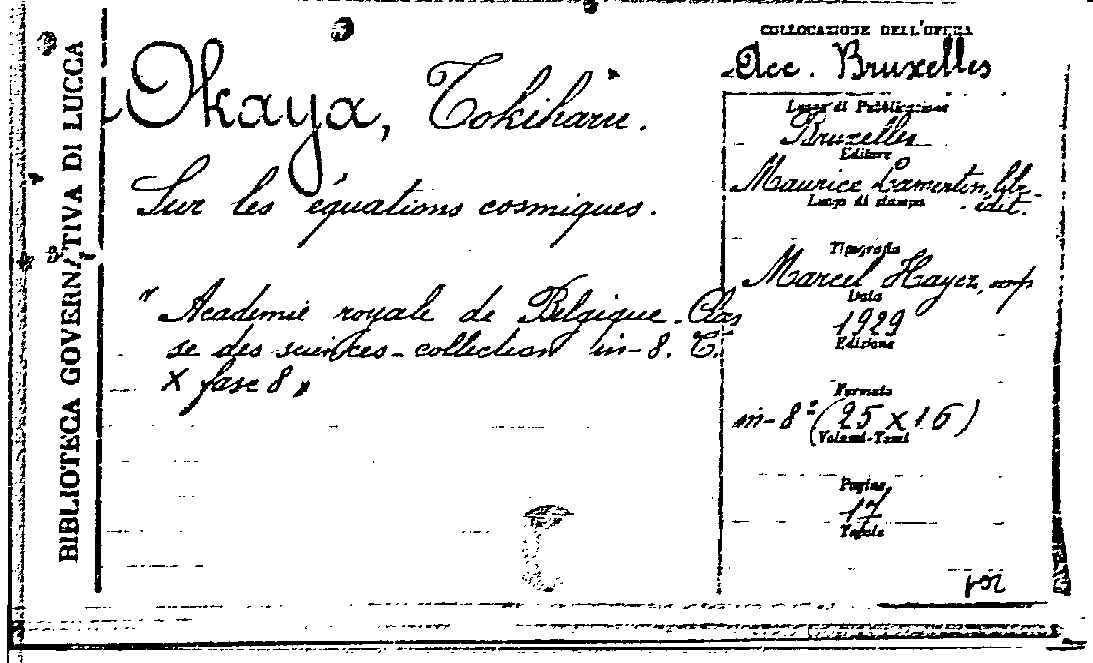 BIBLIOTECA GOVERNATIVA DI LUCCA
Okaya, Tokiharu.
Sur les équations cosmiques.
" Academie royale de Belgique. Clas
se des sciences - collection in-8. T.
X fasc 8 "
COLLOCAZIONE DELL'OPERA
Acc. Bruxelles
Luogo di Pubblicazione
Bruxelles
Editore
Maurice Lamertin, libr.
édit.
Luogo di stampa
Tipografia
Marcel Hayez, imp
Data
1929
Edizione
Formato
in-8° (25 x 16)
Volumi-Tomi
Pagine
17
Tavole